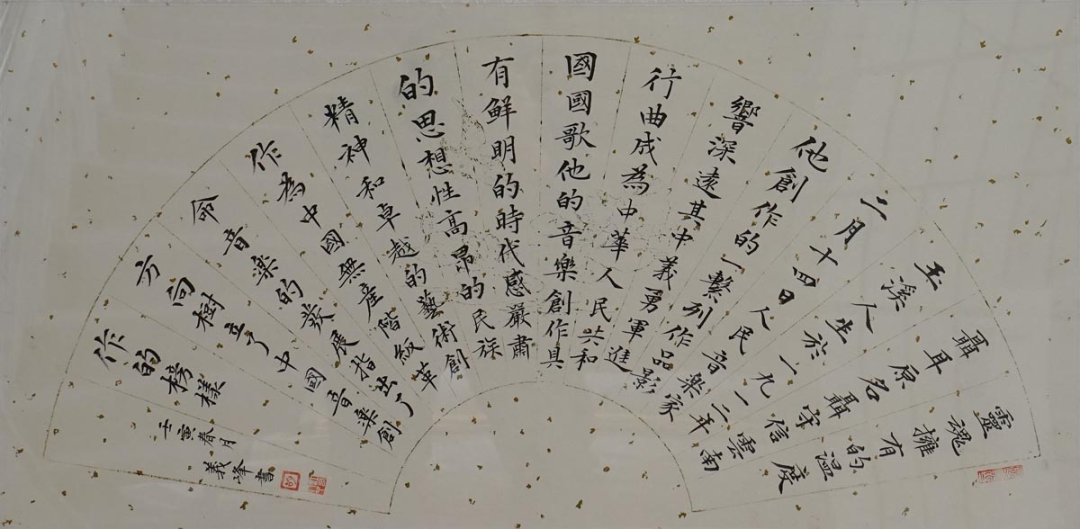 靈魂擁有的溫度
聶耳原名聶守信雲南
玉溪人生於一九一二年
二月十四日人民音楽家
他創作的一繫列作品影
響深遠其中義勇軍進
行曲成為中華人民共和
國國歌他的音樂創作具
有鮮明的時代感嚴肅
的思想性高昂的民族
精神和卓越的藝術創
作為中國無産階級革
命音楽的發展指出了
方向樹立了中國音樂創
作的榜樣
壬寅春月
義峰書